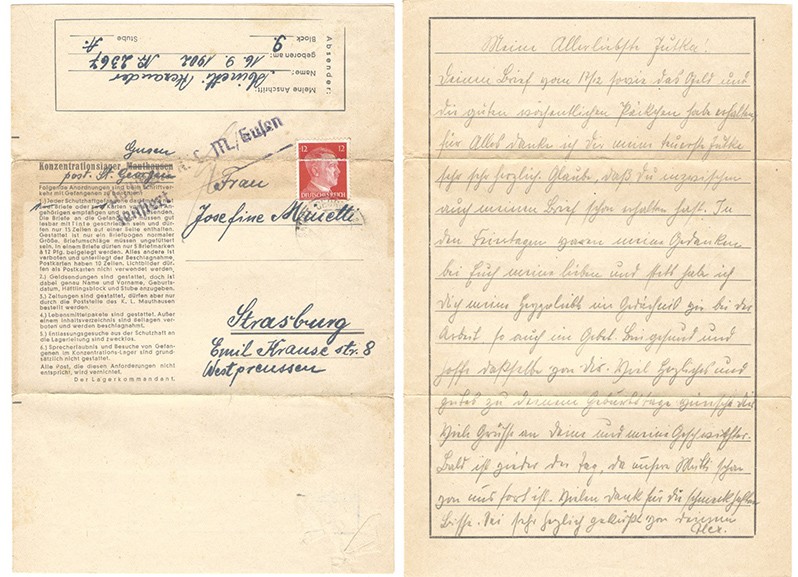 Absender:
Meine Anschrift:
Name: Minetti Alexander
geboren am: 16. 9. 1902 Nr. 2367
Block 9. Stube A.
Gusen
Konzentrationslager Mauthausen
post. St. Georgen
K. L. M./Gusen
Folgende Anordnungen sind beim Schriftver-
kehr mit Gefangenen zu beachten:
1.) Jeder Schutzhaftgefangene darf im
Briefe oder Karten von
gehörigen empfangen und
ne Briefe an die Gefangenen müssen gut
lesbar mit Tinte geschrieben sein und
dürfen nur 15 Zeilen auf einer Seite enthalten.
Gestattet ist nur ein Briefbogen normaler
Größe. Briefumschläge müssen ungefüttert
sein. In einem Briefe dürfen nur 5 Briefmarken
à 12 Pfg. beigelegt werden. Alles andere ist
verboten und unterliegt der Beschlagnahme.
Postkarten haben 10 Zeilen. Lichtbilder dür-
fen als Postkarten nicht verwendet werden.
2.) Geldsendungen sind gestattet, doch ist
dabei genau Name und Vorname, Geburts-
datum, Häftlingsblock und Stube anzugeben.
3.) Zeitungen sind gestattet, dürfen aber nur
durch die Poststelle des K. L. Mauthausen
bestellt werden.
4.) Lebensmittelpakete sind gestattet. Außer
einem Inhaltsverzeichnis sind Beilagen ver-
boten und werden beschlagnahmt.
5.) Entlassungsgesuche aus der Schutzhaft an
die Lagerleitung sind zwecklos.
6.) Sprecherlaubnis und Besuche von Gefan-
genen im Konzentrations-Lager sind grund-
sätzlich nicht gestattet.
Alle Post, die diesen Anforderungen nicht
entspricht, wird vernichtet.
Der Lagerkommandant.
12 12
DEUTSCHES REICH
Frau
Josefine Minetti
Strasburg
Emil Krause str. 8
Westpreussen
Meine Allerliebste Jutka!
Deinen Brief vom 12/12 sowie das Geld und
die guten wöchentlichen Päckchen habe erhalten
für Alles danke ich Dir meine teuerste Jutke
sehr sehr herzlich. Glaube, daß Du inzwischen
auch meinen Brief schon erhalten hast. In
den Feiertagen waren meine Gedanken
bei Euch meine lieben und stets hab ich
Dich meine Herzliebste im Gedächtnis wie bei der
Arbeit so auch im Gebet. Bin gesund und
hoffe dasselbe von Dir. Viel Herzliches und
gutes zu Deinem Geburtstage wünsche Dir
Viele Grüsse an Deine und meine Geschwister.
Bald ist wieder der Tag, da unsere Mutti schon
von uns fort ist. Vielen Dank für die schmackhaften
Bisse. Sei sehr herzlich geküßt von Deinem
Alex.